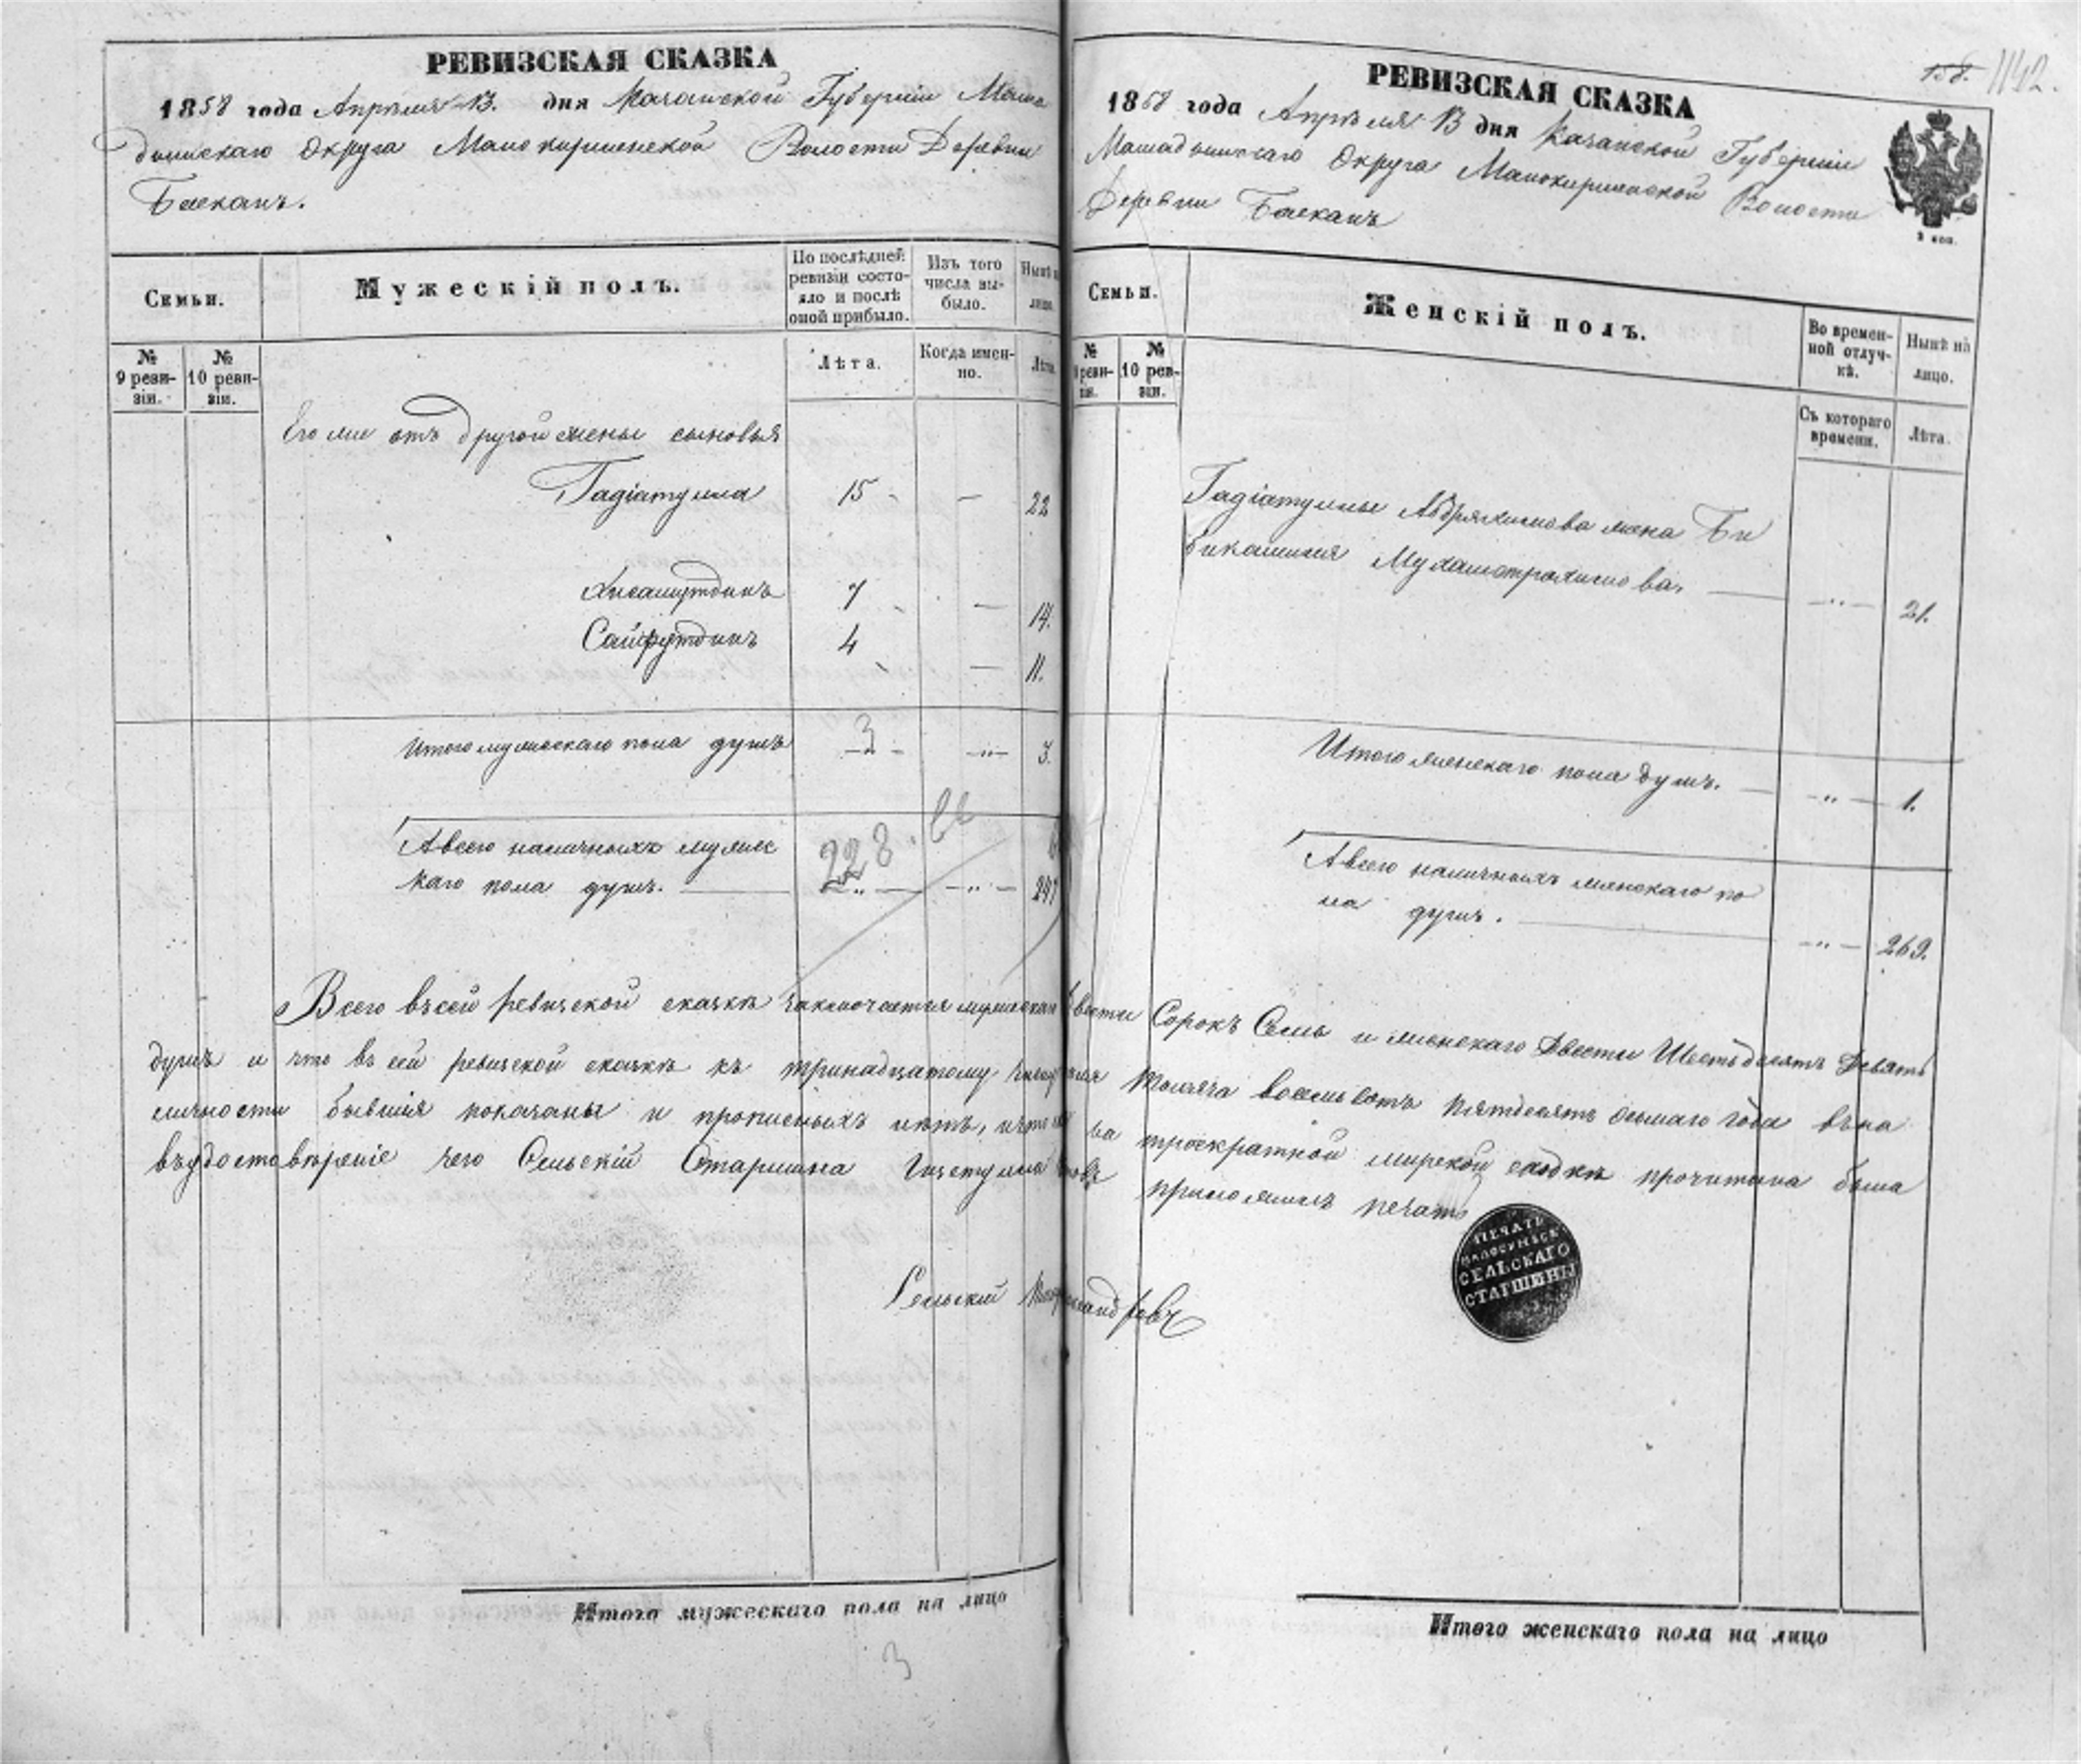 РЕВИЗСКАЯ СКАЗКА
1858 года Апрѣля 13. дня Казанской Губерніи Мама
дышскаго Округа Малокирменской Волости Деревни
Баскань.
Семьи.
Мужескій полъ.
По послѣдней ревизіи состо-
яло и послѣ
оной прибыло.
Изъ того
числа вы-
было.
Нынѣ
лицо.
№
9 реви-
зіи.
№
10 реви-
зіи.
Лѣта.
Когда имен-
но.
Лѣта.
Его же отъ другой жены сыновья
Гадіатулла 15 — 22
Хисамутдинъ 7 — 14.
Сайфутдинъ 4 — 11.
Итого мужескаго пола душъ 3 — 3.
А всего наличныхъ мужес
каго пола душъ. 228 247
Всего въ сей ревизской сказкѣ заключается мужескаго Двести Сорокъ Семь и женскаго Двести Шестьдесятъ Девять
душъ и что въ сей ревизской сказкѣ къ тринадцатому Апреля тысяча восемьсотъ пятдесятъ осьмаго года въ на
личности бывшія показаны и прописныхъ нѣтъ, и что на троекратной мирской сходкѣ прочитана была
въ удостовѣреніе чего Сельскій Старшина приложилъ печать
Сельскій
Итого мужескаго пола на лицо
3
158. 1142.
РЕВИЗСКАЯ СКАЗКА
1858 года Апрѣля 13 дня Казанской Губерніи
Мамадышскаго Округа Малокирменской Волости
Деревни Баскань
3 коп.
Семьи.
Женскій полъ.
Во времен-
ной отлуч-
кѣ.
Нынѣ на
лицо.
№
9 реви-
зіи.
№
10 рев-
зіи.
Съ котораго
времени.
Лѣта.
Гадіатуллы Абдряхимова жена Би
бикамиля Мухаметрахимова. 21.
Итого женскаго пола душъ. 1.
А всего наличныхъ женскаго по
ла душъ. 269.
ПЕЧАТЬ
СЕЛЬСКАГО
СТАРШИНЫ
Итого женскаго пола на лицо